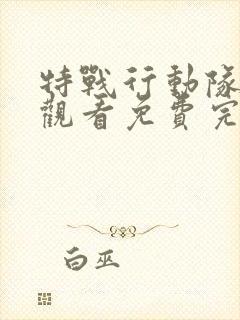 特戰行動隊
觀看免費完
白巫